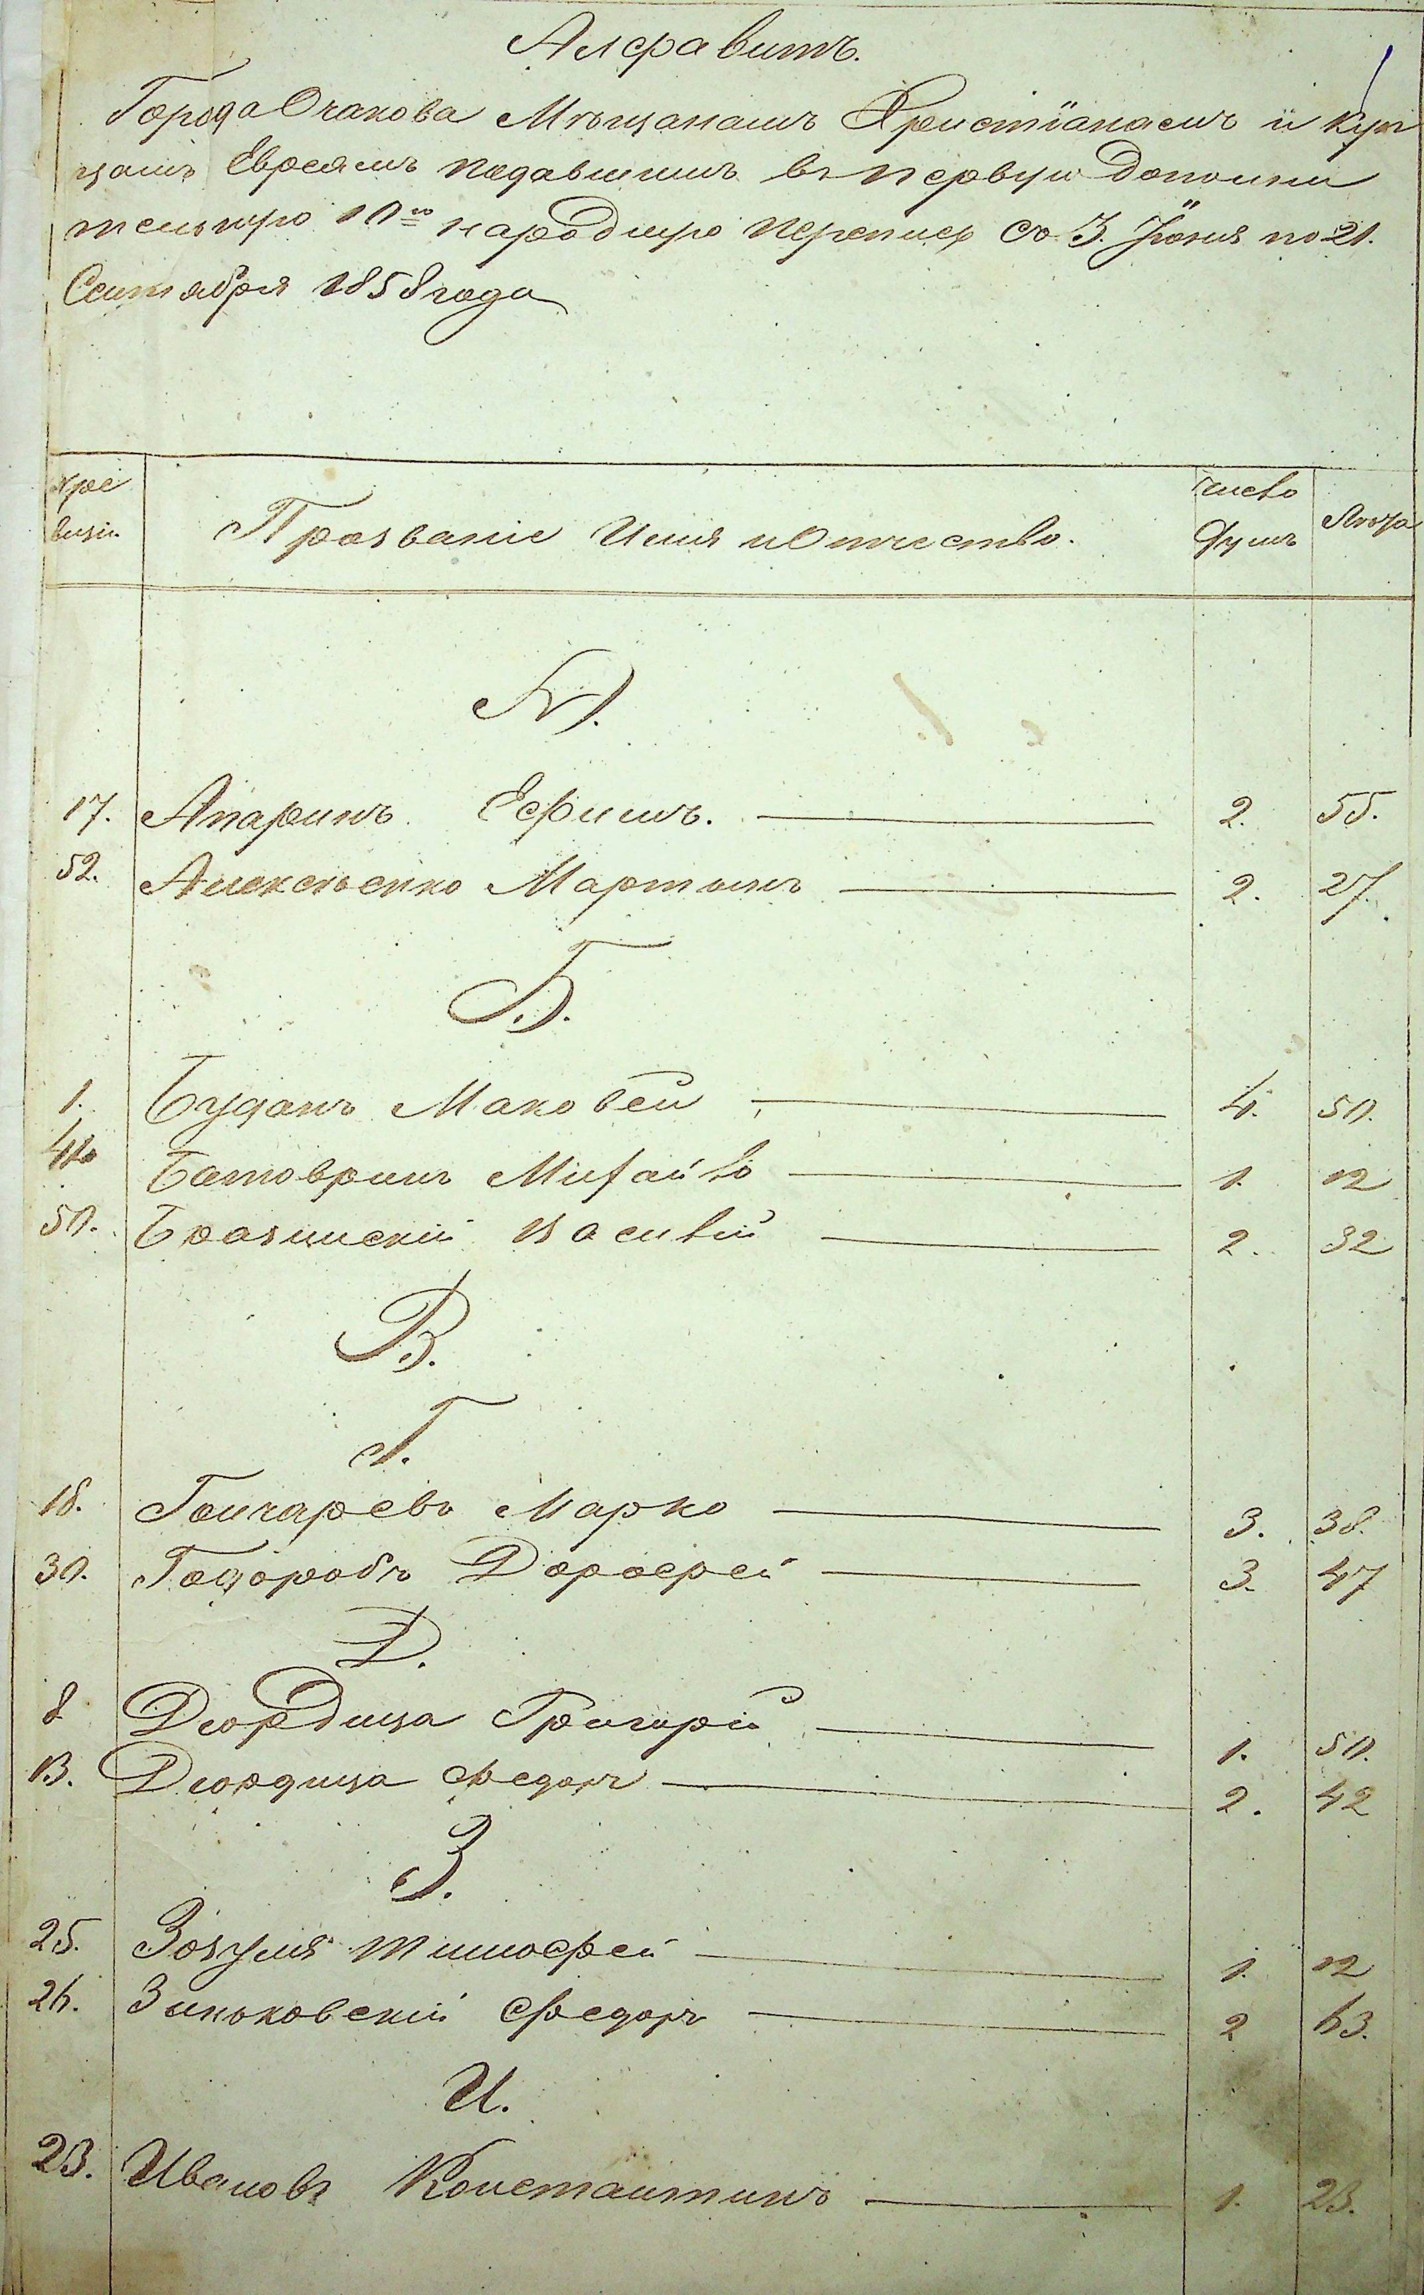 Алфавитъ.
Города Очакова Мѣщанамъ Христіанамъ и Куп
цамъ Евреямъ подавшимъ въ первую дополни
тельную 10ю народную перепись съ 3. Іюня по 21.
Сентября 1858 года
№ ре
визіи.
Прозваніе Имя и Отчество.
число
душъ
Лѣта
А.
17. Апаринъ Ефимъ. 2. 55.
52. Алексѣенко Мартынъ 2. 27.
Б.
1. Буданъ Маковей 4. 50.
Михайло 1. 12
50. Василій 2. 32
В.
Г.
18. Гончаревъ Марко 3. 38.
30. Дорофей 3. 47
Д.
8 Деордица Григорій 1. 50.
13. Деордица Федоръ 2. 42
З.
25. Зозуля Тимофей 1. 12
26. Зиньковскій Федоръ 2 63.
И.
23. Ивановъ Константинъ 1. 23.